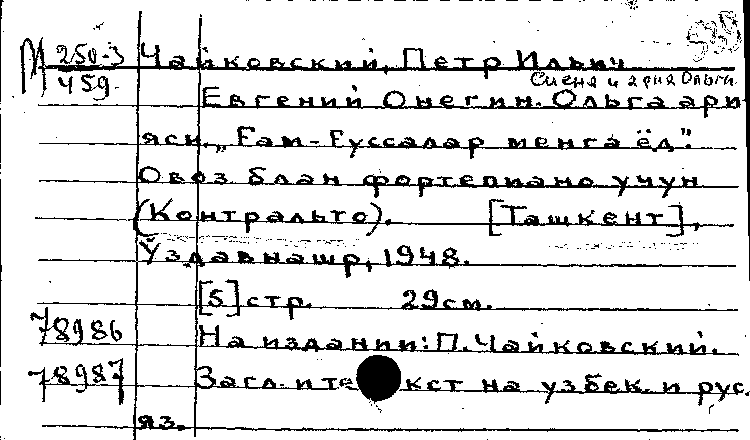 М 250-3
459.
Чайковский, Петр Ильич
Сцена и ария Ольги.
Евгений Онегин. Ольга ари
яси. „Ғам-Ғуссалар менга ёд".
Овоз блан фортепиано учун
(Контральто). [Ташкент],
Ўздавнашр, 1948.
[5] стр. 29см.
78986
На издании: П. Чайковский.
78987
Загл. и текст на узбек. и рус.
яз.